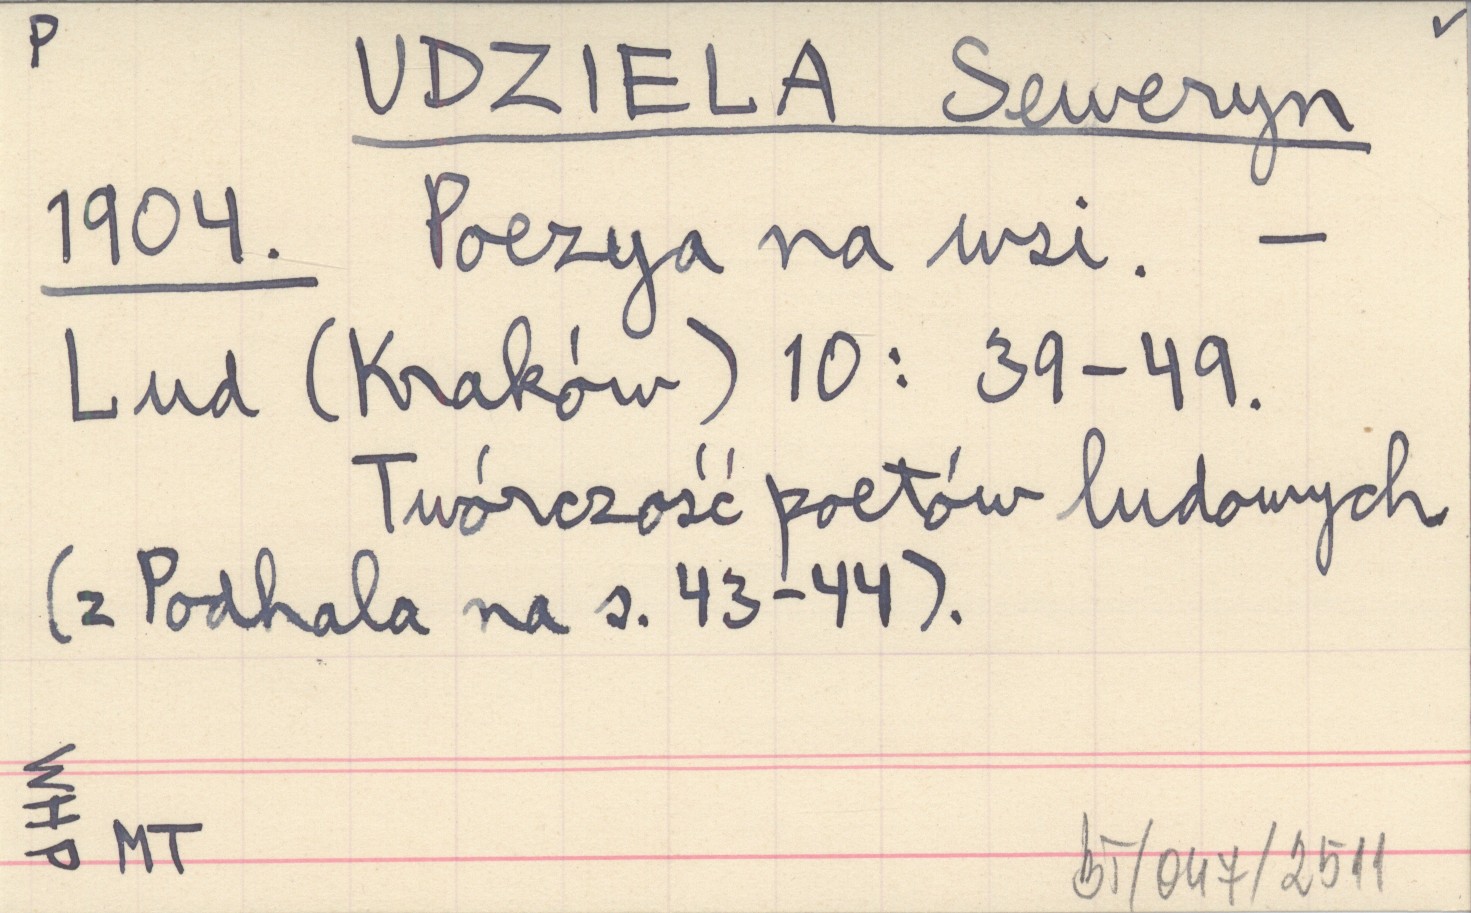 P
UDZIELA Seweryn
1904. Poezya na wsi. —
Lud (Kraków) 10: 39-49.
Twórczość poetów ludowych
(z Podhala na s. 43-44).
WHP
MT
/047/2511